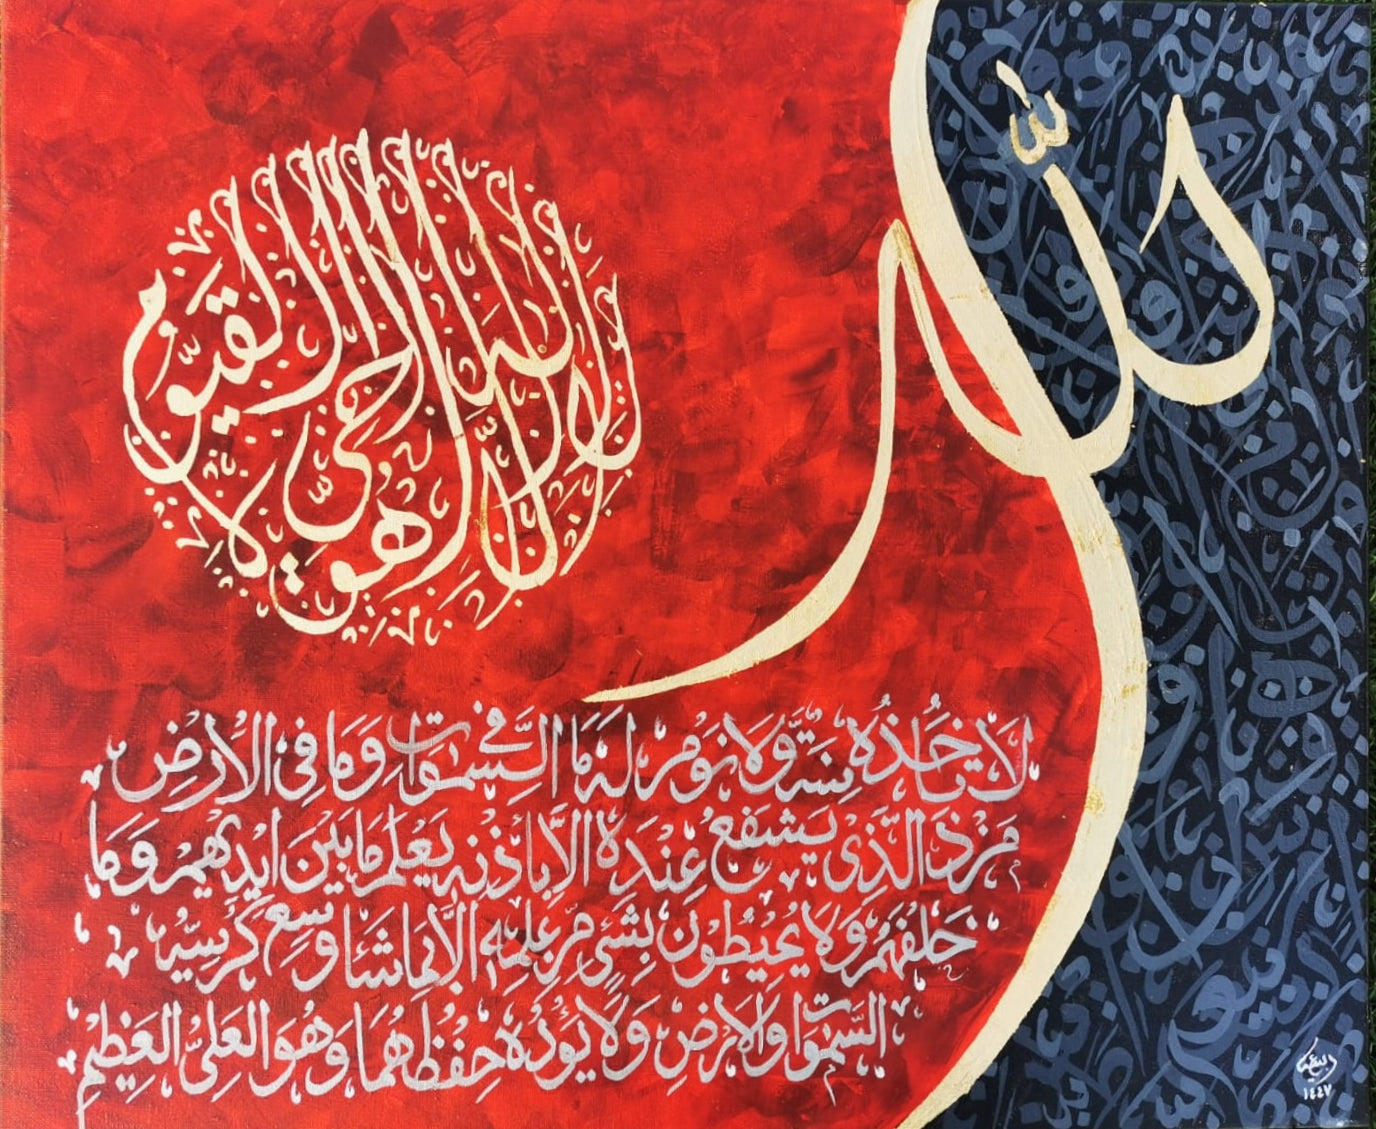 الله
الله لا إله إلا هو الحي القيوم لا
لَا تَأْخُذُهُ سِنَةٌ وَلَا نَوْمٌ لَهُ مَا فِي السَّمٰوَاتِ وَمَا فِي الْأَرْضِ
مَنْ ذَا الَّذِي يَشْفَعُ عِنْدَهُ إِلَّا بِإِذْنِهِ يَعْلَمُ مَا بَيْنَ أَيْدِيهِمْ وَمَا
خَلْفَهُمْ وَلَا يُحِيطُونَ بِشَيْءٍ مِنْ عِلْمِهِ إِلَّا بِمَا شَاءَ وَسِعَ كُرْسِيُّهُ
السَّمٰوَاتِ وَالْأَرْضَ وَلَا يَئُودُهُ حِفْظُهُمَا وَهُوَ الْعَلِيُّ الْعَظِيمُ
١٤٤٧